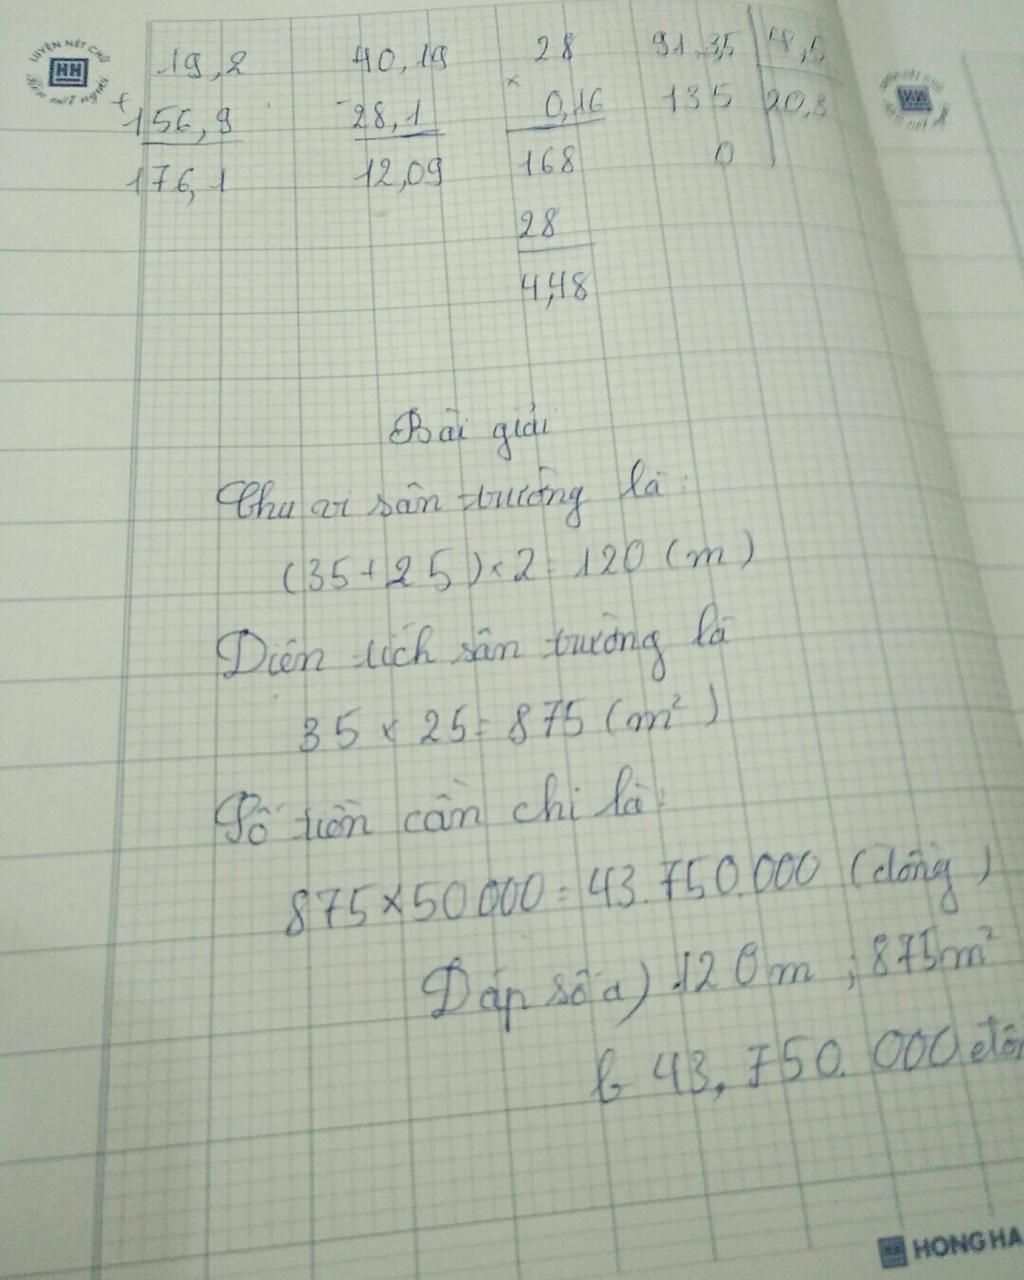 LUYỆN NÉT CHỮ
HH
Rèn nết người
19,2 40,19 28 91,35 4,5
+ - ×
156,9 28,1 0,16 135 20,3
176,1 12,09 168 0
28
4,48
Bài giải
Chu vi sân trường là:
(35+25)×2=120 (m)
Diện tích sân trường là
35 × 25= 875 (m²)
Số tiền cần chi là:
875×50000=43.750.000 (đồng)
Đáp số a) 120m ; 875m²
b 43,750.000
HONG HA